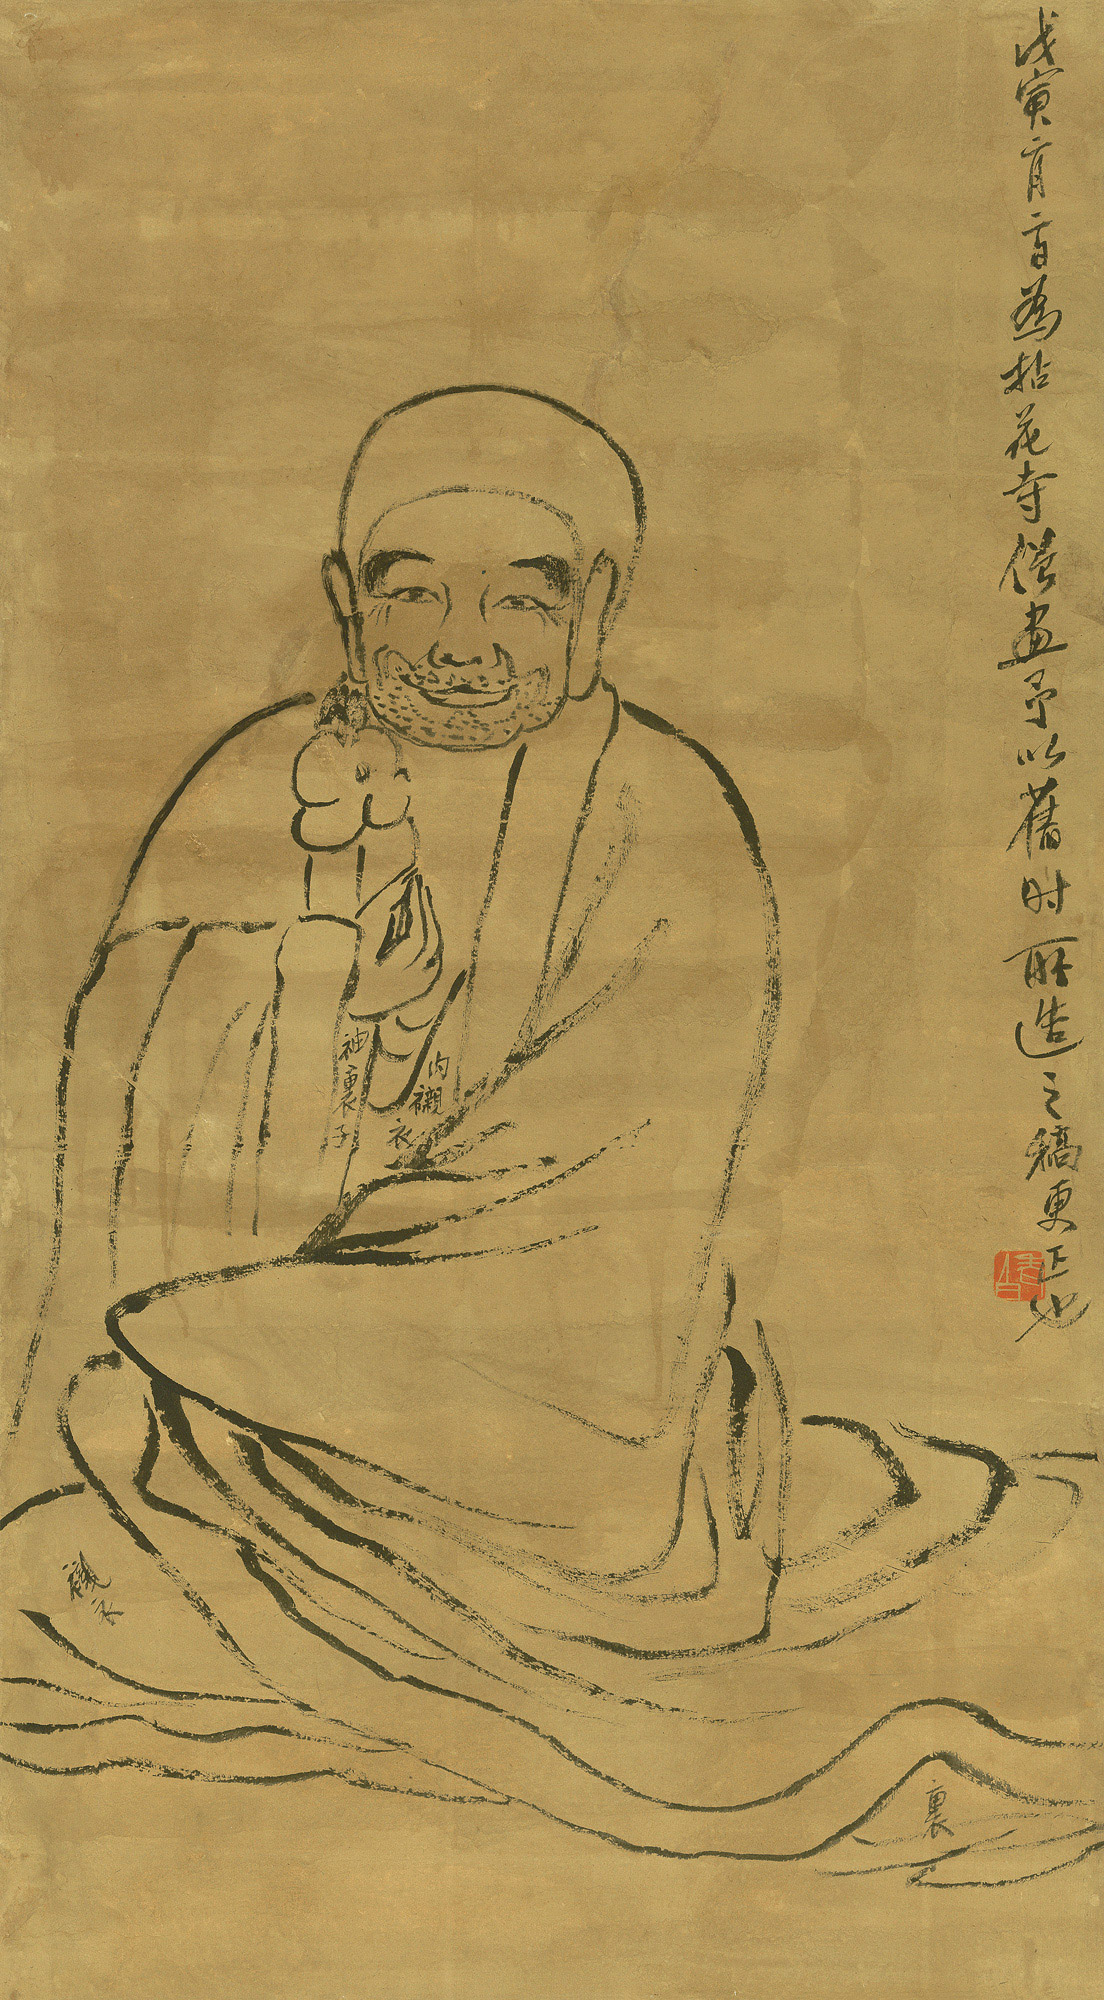 戊寅二月二日為拈花寺僧畫予以舊时所造之稿更正也
内襯衣
袖裏子
襯衣
裏